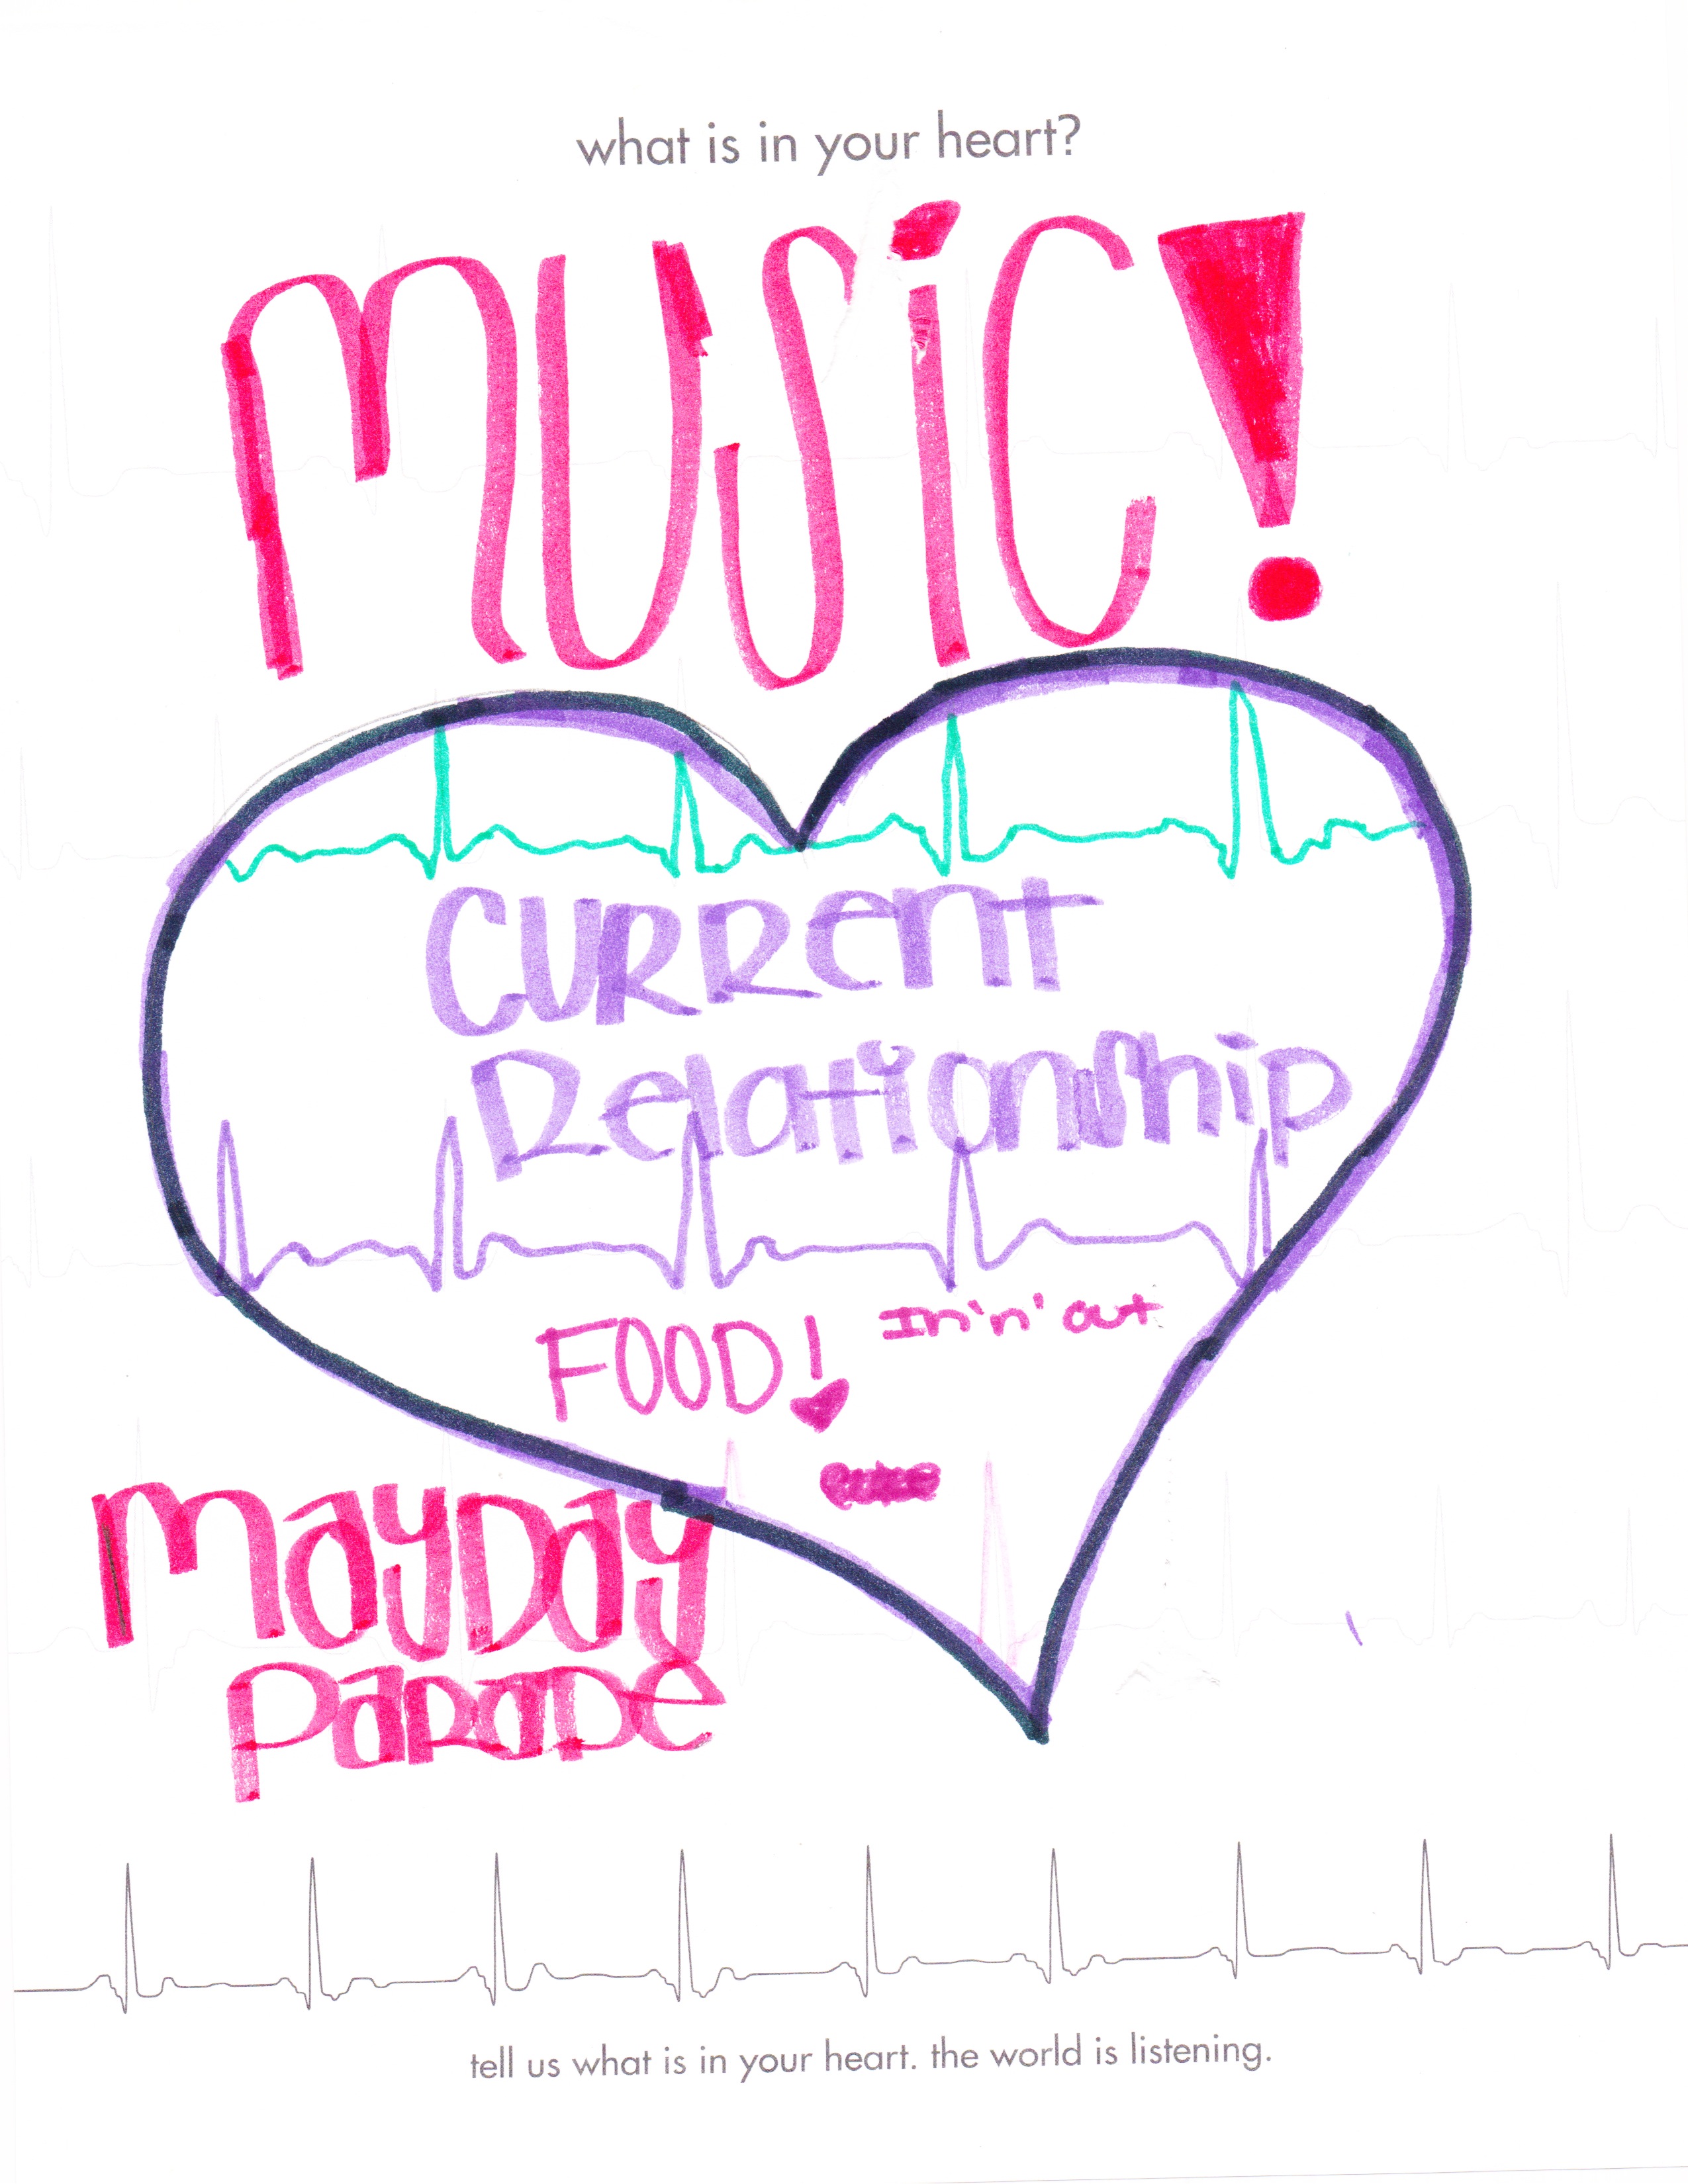 what is in your heart?
MUSiC!
CURRent
Relationship
FOOD! In'n' out
MAYDAY
PARADE
tell us what is in your heart. the world is listening.